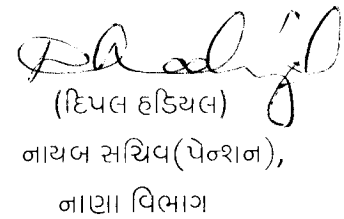 (દિપલ હડિયલ)
નાયબ સચિવ(પેન્શન),
નાણા વિભાગ